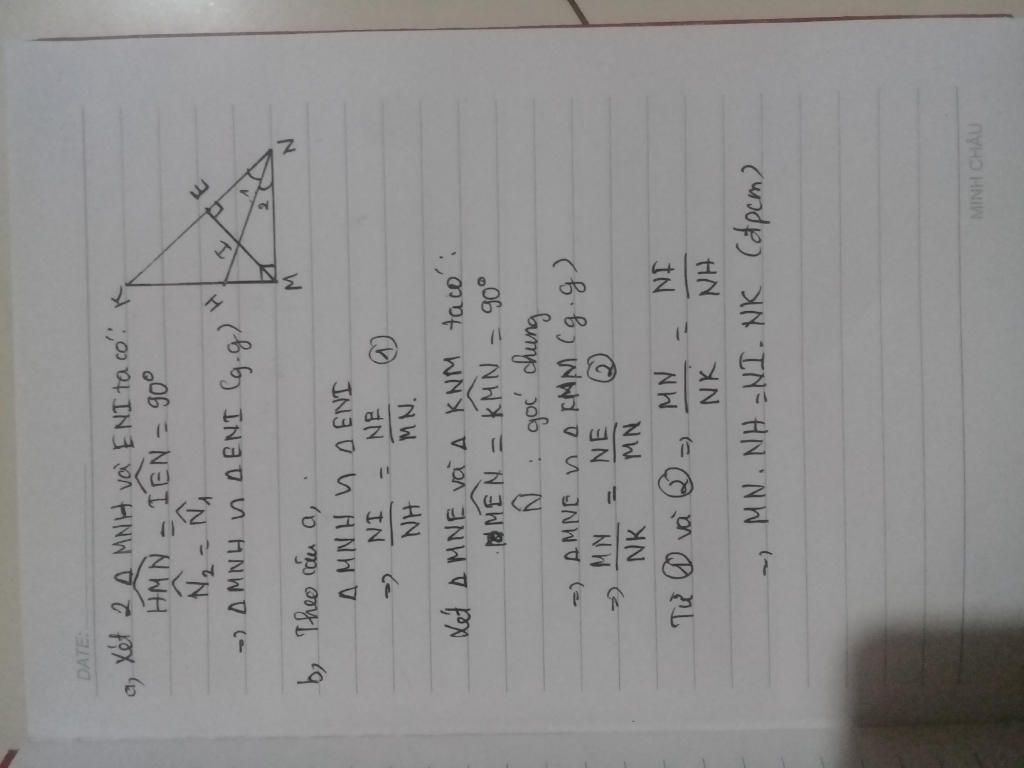 DATE:
a, Xét 2 Δ MNH và ENI ta có:
HMN = IEN = 90°
N2 = N1
=> Δ MNH ∽ Δ ENI (g.g)
K
E
H
I
1
2
M
N
b, Theo câu a,
Δ MNH ∽ Δ ENI
=> NI/NH = NE/MN. ①
Xét Δ MNE và Δ KNM ta có:
MEN = KMN = 90°
N : góc chung
=> Δ MNE ∽ Δ KMN (g.g)
=> MN/NK = NE/MN ②
Từ ① và ② => MN/NK = NI/NH
=> MN. NH = NI. NK (đpcm)
MINH CHÂU